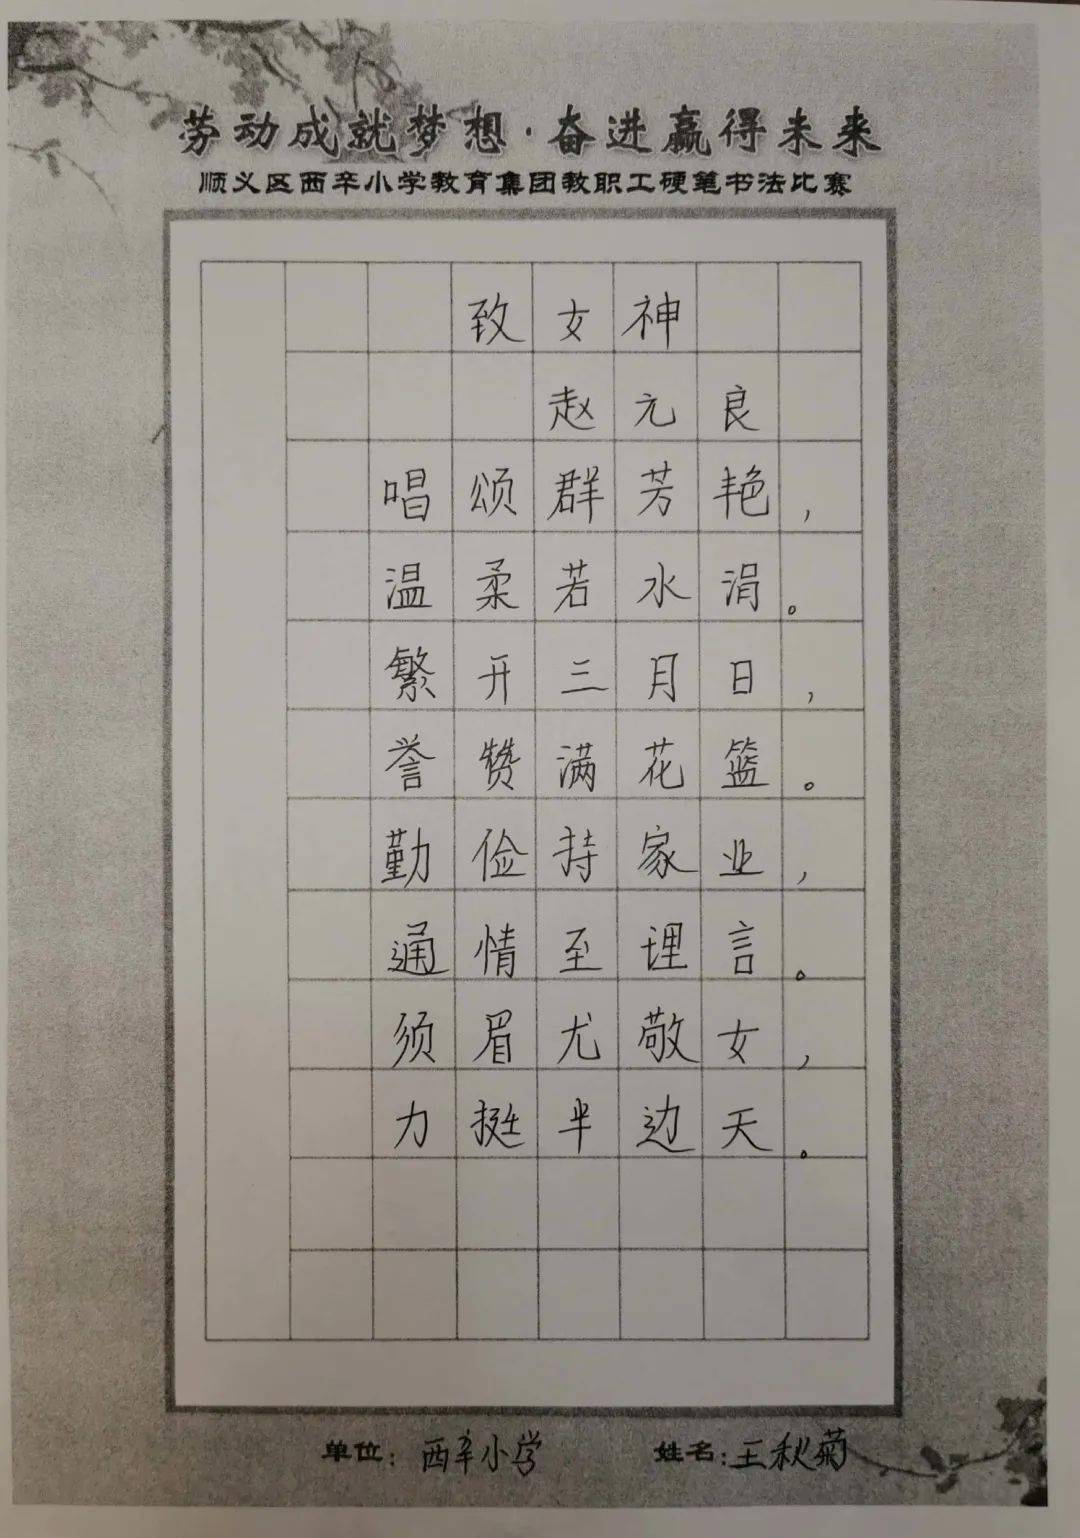 劳动成就梦想·奋进赢得未来
顺义区西辛小学教育集团教职工硬笔书法比赛
致女神
赵元良
唱颂群芳艳，
温柔若水涓。
繁开三月日，
誉赞满花篮。
勤俭持家业，
通情至理言。
须眉尤敬女，
力挺半边天。
单位：西辛小学 姓名：王秋菊